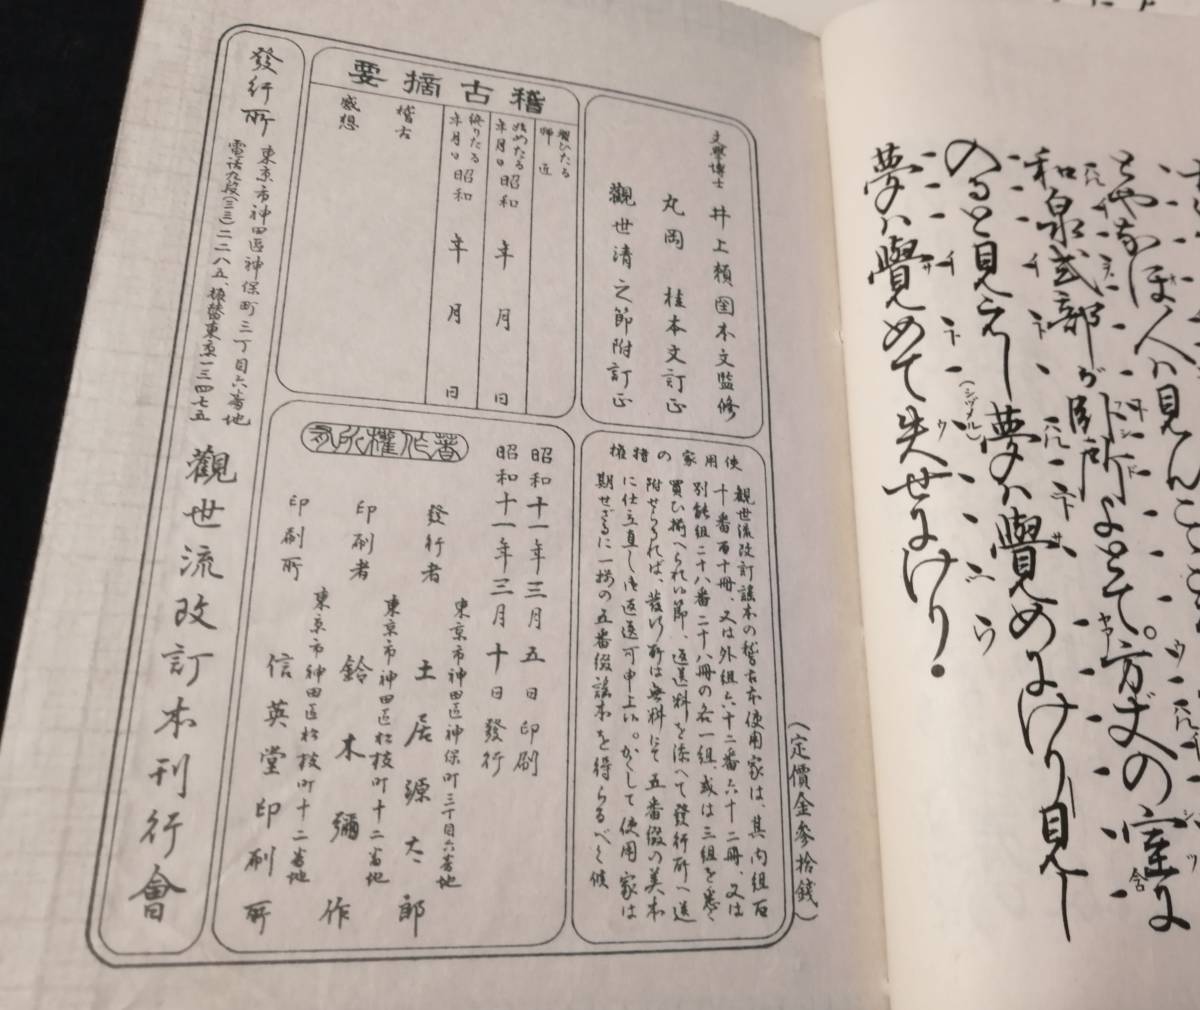 とやなほ人は見
和泉式部が臥所よとて。方丈の室に
入ると見えし夢は覺めにけり見し
夢は覺めて失せにけり
文學博士 井上頼圀本文監修
丸岡 桂本文訂正
觀世清之節附訂正
稽古摘要
習ひたる師匠
始めたる年月日 昭和 年 月 日
終りたる年月日 昭和 年 月 日
稽古
感想
使用家の特權
觀世流改訂謠本の稽古本使用家は、其内組百
十番百十冊、又は外組六十二番六十二冊、又は
別能組二十八番二十八冊の各一組、或は三組を悉く
買ひ揃へられい節、返送料を添へて發行所へ送
附せらるれば、發行所は無料にて五番綴の美本
に仕立直し、御返送可申上い。かくして使用家は
期せざるに一揃の五番綴謠本を得らるべく候
(定價金參拾錢)
昭和十一年三月五日印刷
昭和十一年三月十日發行
著作權所有
發行者
東京市神田區神保町三丁目六番地
土居源太郎
印刷者
東京市神田區松枝町十二番地
鈴木彌作
印刷所
東京市神田區松枝町十二番地
信英堂印刷所
發行所
東京市神田區神保町三丁目六番地
電話九段(三三)二二八五、振替東京一三四七五
觀世流改訂本刊行會